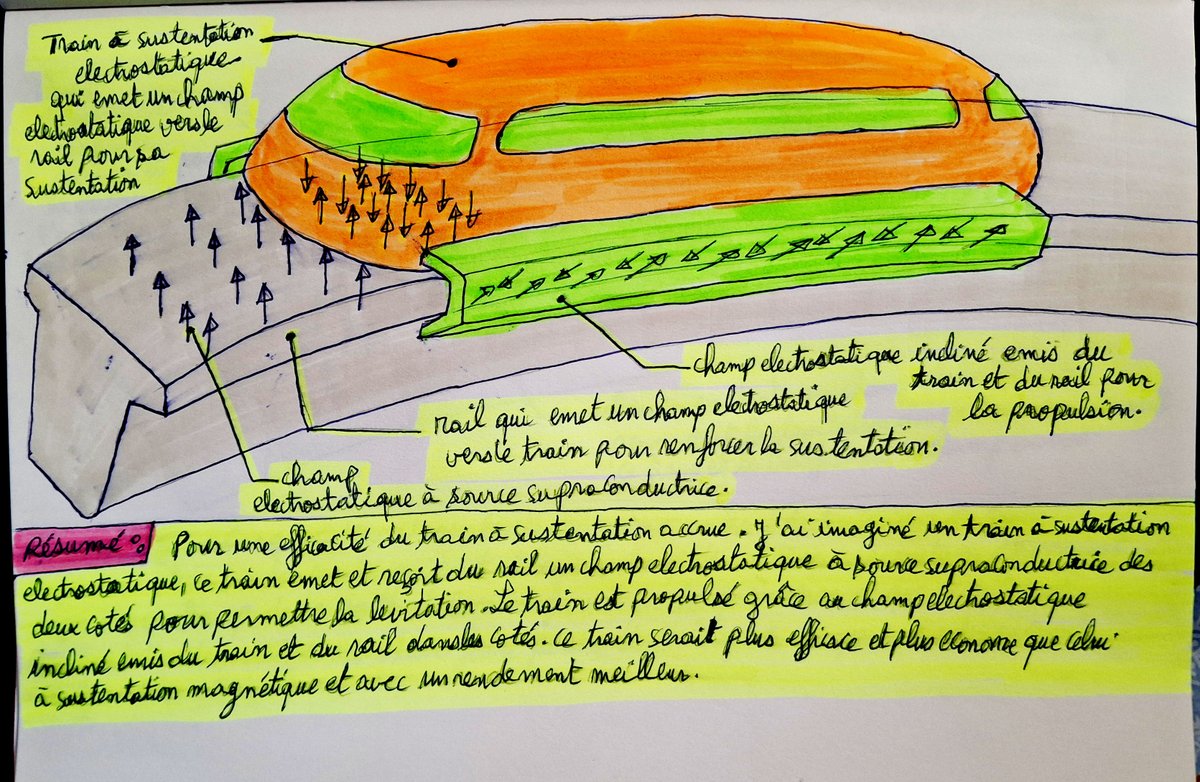 Train à sustentation
electrostatique
qui emet un champ
electrostatique vers le
rail pour sa
sustentation
champ electrostatique incliné emis du
train et du rail pour
la propulsion.
rail qui emet un champ electrostatique
vers le train pour renforcer la sustentation.
champ
electrostatique à source supraconductrice.
Résumé : Pour une efficacité du train à sustentation accrue. J'ai imaginé un train à sustentation
electrostatique, ce train emet et reçoit du rail un champ electrostatique à source supraconductrice des
deux cotés pour permettre la levitation. Le train est propulsé grâce au champ electrostatique
incliné emis du train et du rail dans les cotés. Ce train serait plus efficace et plus econome que celui
à sustentation magnétique et avec un rendement meilleur.